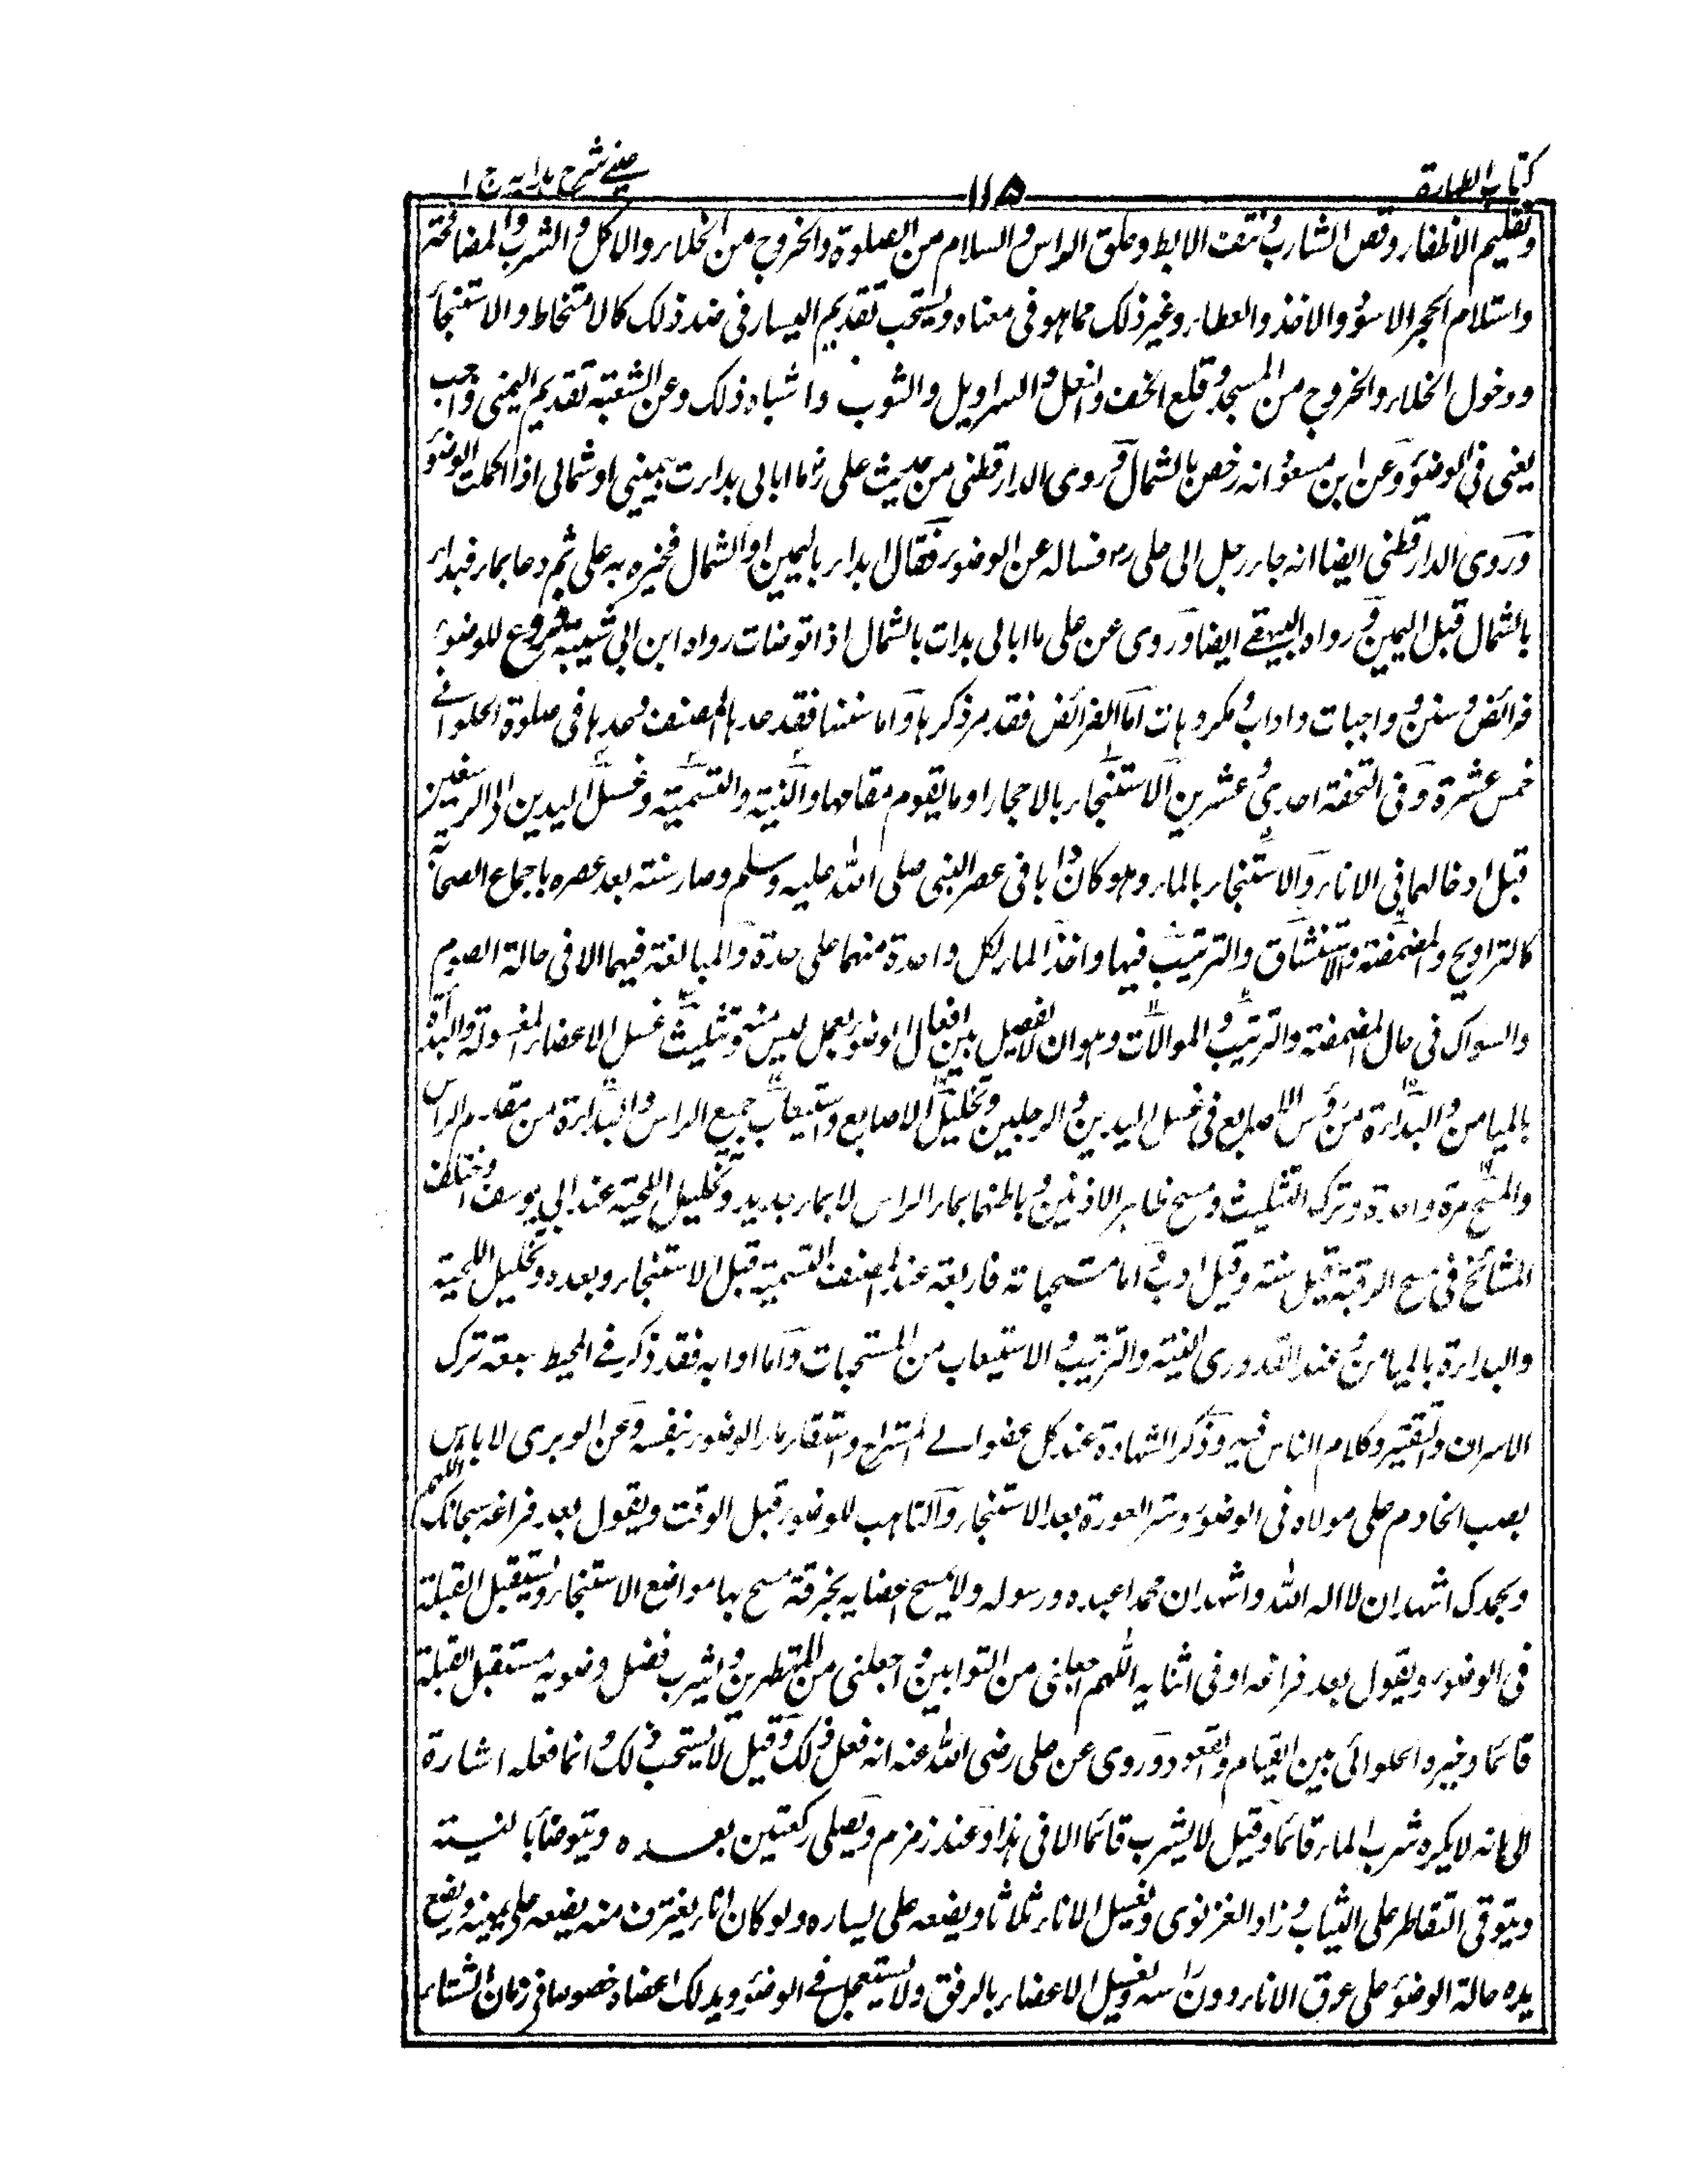 كتاب الطهارة
١١٥
عينى شرح هدايه ج ١
وتقليم الاظفار وقص الشارب ونتف الابط وحلق الراس والسلام من الصلوة والخروج من الخلاء والاكل والشرب والمصافحة
واستلام الحجر الاسود والاخذ والعطاء وغير ذلك مما هو فى معناه ويستحب تقديم اليسار فى ضد ذلك كالامتخاط والاستنجاء
ودخول الخلاء والخروج من المسجد وقلع الخف والنعل والسراويل والثوب واشباه ذلك وعن الشعبة تقديم اليمنى واجب
يعنى فى الوضوء وعن ابن مسعود انه رخص بالشمال وروى الدارقطنى من حديث على رض ما ابالى بداءت بيمينى او شمالى اذا اكملت الوضوء
وروى الدارقطنى ايضا انه جاء رجل الى على رض فساله عن الوضوء فقال ابداء باليمين او الشمال فخيره به على ثم دعا بماء فبداء
بالشمال قبل اليمين ورواه البيهقے ايضا وروى عن على ما ابالى بدات بالشمال اذا توضات رواه ابن ابى شيبة فروع للوضوء
فرائض وسنن وواجبات واداب ومكروهات اما الفرائض فقد مر ذكرها واما سننا فقد عدها المصنف وعدها فى صلوة الحلوانے
خمس عشرة وفى التحفة احدى وعشرين الاستنجاء بالاحجار او ما يقوم مقامها والنية والتسمية وغسل اليدين الى الرسغين
قبل ادخالهما فى الاناء والاستنجاء بالماء وهو كان ادبا فى عصر النبى صلى الله عليه وسلم وصار سنة بعد عصره باجماع الصحابة
كالتراويح والمضمضة والاستنشاق والترتيب فيها واخذ الماء لكل واحدة منهما على حدة والمبالغة فيهما الا فى حالة الصوم
والسواك فى حال المضمضة والترتيب والموالات وهو ان لا يفصل بين افعال الوضوء بعمل ليس منه وتثليث غسل الاعضاء المغسولة والبداءة
بالميامن والبداءة من رؤس الاصابع فى غسل اليدين والرجلين وتخليل الاصابع واستيعاب جميع الراس والبداءة من مقدم الراس
والمسح مرة واحدة وترك التثليث ومسح ظاهر الاذنين وباطنهما بماء الراس لا بماء جديد وتخليل اللحية عند ابى يوسف واختلف
المشائخ فى مسح الرقبة قيل سنة وقيل ادب واما مستحباته فاربعة عند المصنف التسمية قبل الاستنجاء وبعده وتخليل اللحية
والبداءة بالميامن وعند القدورى النية والترتيب والاستيعاب من المستحبات واما ادابه فقد ذكر فے المحيط سبعة ترك
الاسراف والتقتير وكلام الناس فيه وذكر الشهادة عند كل عضو الے واستقاء ماء الوضوء بنفسه وعن الوبرى لا باس
بصب الخادم على مولاه فى الوضوء وستر العورة بعد الاستنجاء والتاهب للوضوء قبل الوقت ويقول بعد فراغه سبحانك اللهم
وبحمدك اشهد ان لا اله الا الله واشهد ان محمدا عبده ورسوله ولا يمسح اعضايه بخرقة مسح بها مواضع الاستنجاء ويستقبل القبلة
فى الوضوء ويقول بعد فراغه او فى اثنايه اللهم اجعلنى من التوابين واجعلنى من المتطهرين ويشرب فضل وضويه مستقبل القبلة
قائما وخيره الحلوائى بين القيام والقعود وروى عن على رضى الله عنه انه فعل ذلك وقيل لا يستحب ذلك وانما فعله اشارة
الى انه لا يكره شرب الماء قائما وقيل لا يشرب قائما الا فى هذا وعند زمزم ويصلى ركعتين بعده ويتوضأ بالنية
ويتوقى التقاطر على الثياب وزاد الغزنوى ويغسل الاناء ثلاثا ويضعه على يساره ولو كان اناء يغترف منه يضعه على يمينه ويضع
يده حالة الوضوء على عرق الاناء دون راسه ويغسل الاعضاء بالرفق ولا يستعجل فے الوضوء ويدلك اعضاه خصوصا فى زمان الشتاء